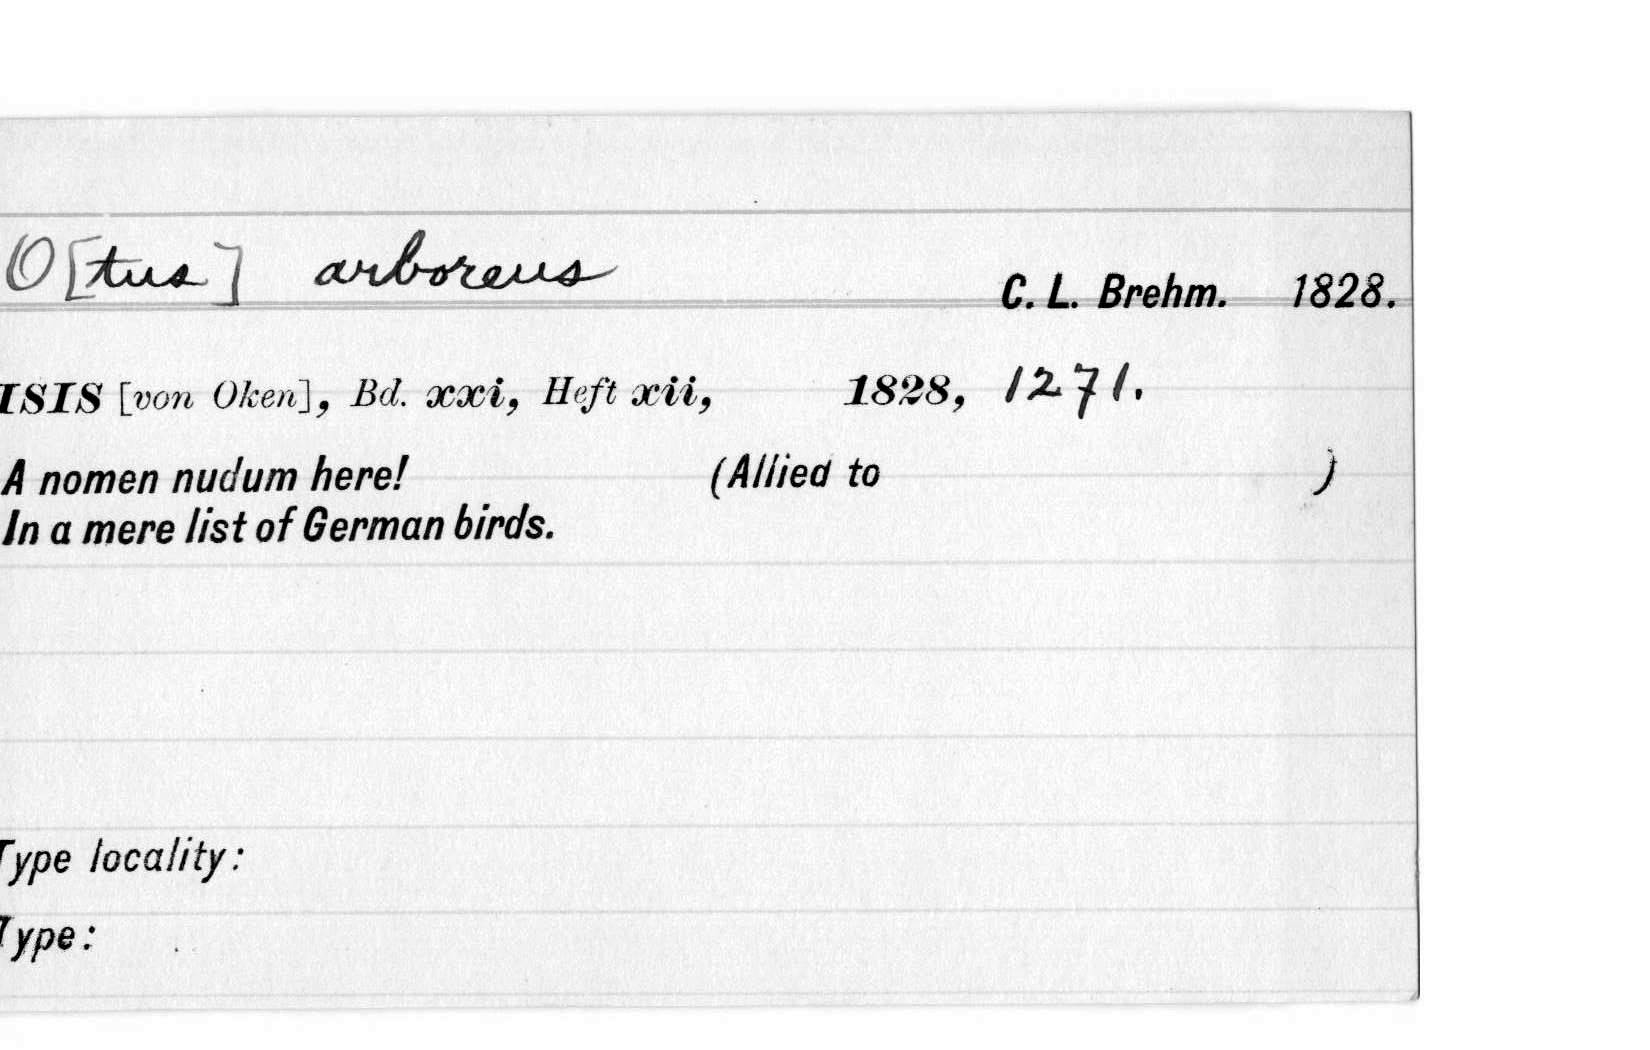 O[tus] arboreus
C. L. Brehm. 1828.
ISIS [von Oken], Bd. xxi, Heft xii, 1828, 1271.
A nomen nudum here! (Allied to )
In a mere list of German birds.
Type locality:
Type: